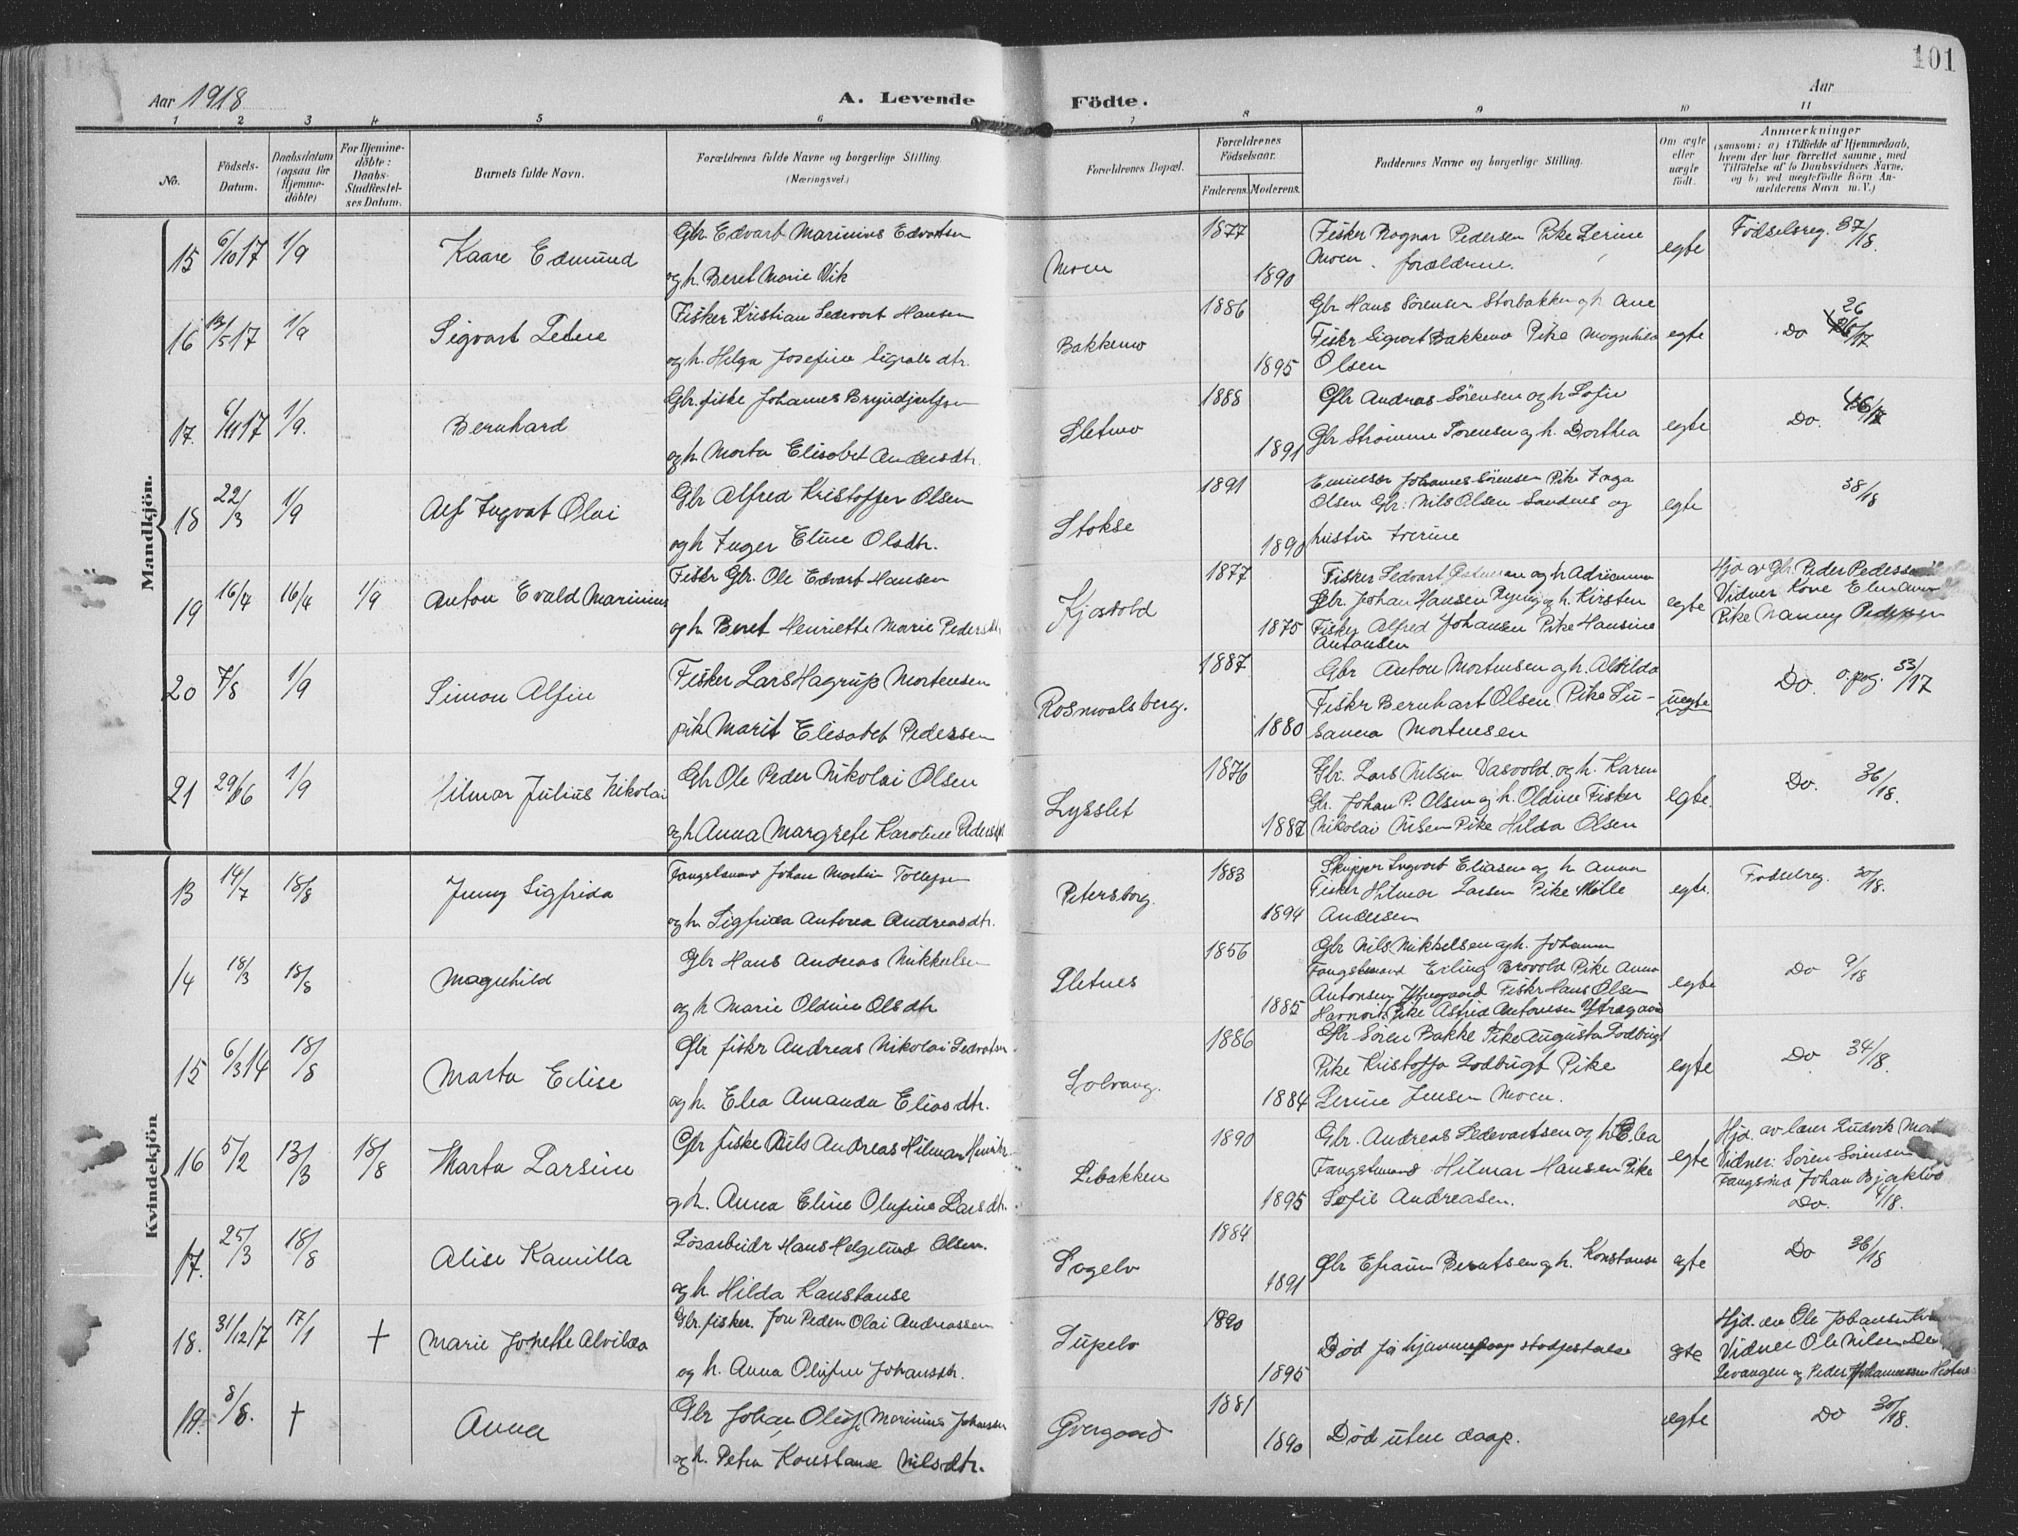 101
Aar 1918
A. Levende Födte.
Aar
1 2 3 4 5 6 7 8 9 10 11
No.
Födsels-Datum.
Daabsdatum (ogsaa for Hjemmedöbte)
For Hjemmedöbte: Daabs-Stadfæstelses Datum.
Barnets fulde Navn.
Forældrenes fulde Navne og borgerlige Stilling. (Næringsvei.)
Forældrenes Bopæl.
Forældrenes Födselsaar.
Faderens. Moderens.
Faddernes Navne og borgerlige Stilling.
Om ægte eller uægte födt.
Anmærkninger
(saasom: a) i Tilfælde af Hjemmedaab, hvem der har forrettet samme, med Tilföielse af to Daabsvidners Navne, og b) ved uægtefödte Börn Anmelderens Navn m. V.)
Mandkjön.
15 6/10 17 1/9 Kaare Edmund
Gbr. Edvart Marinius Edvartsen
og h. Beret Marie Vik
Moen 1877 1890
Fisker Ragnar Pedersen Pike Lerine
Moen. forældrene.
egte Födselsreg. 37/18.
16 13/5 17 1/9 Sigvart
Fisker Kristian Sedevart Hansen
og h. Helga Josefine dtr.
Bakkemo 1886 1895
Gbr Hans Sörensen Storbakken og h. Ane
Fisker Sigvart Bakkemo Pike Magnhild
Olsen
egte Do 26
17. 6/11 17 1/9. Bernhard
Gbr. fiske Johannes
og h Marta Elisabet Andersdtr.
Sletmo 1888 1891
Gbr Andreas Sörensen og h Sofie
Gbr Strömme Sörensen og h. Dorthea
egte Do.
18 22/3 1/9 Alf Ingvat Olai
Gbr Alfred Kristoffer Olsen
og h Inger Eline Olsdtr.
Stokse 1891 1890
Emissær Johannes Sörensen Pike Inga
Olsen Gbr: Nils Olsen Sandnes og
egte 38/18
19 16/4 16/4 1/9 Anton Evald Marinius
Fiskr Gbr. Ole Edvart Hansen
og h Beret Henriette Marie Pedersdtr
Kjosvold 1877 1875
Fisker Sedvart og h Adrianna
Gbr. Johan Hansen og h. Kirsten
Fisker Alfred Johansen Pike Hansine
Antonsen
egte
Hjd av Gbr. Peder Pedersen
Vidner Kone Elen Anna
Pike Nanny Pedersen
20 7/8 1/9 Simon Alfin
Fisker Lars Hagrup Mortensen
pike Marit Elesabet Pedersen
Rosmoalsberg. 1887 1880
Gbr Anton Mortensen og h. Alvilda
Fiskr Bernhart Olsen Pike Su-
sanna Mortensen
uegte Do. 53/17
21 29/6 16 1/9 Hilmar Julius Nikolai
Gbr Ole Peder Nikolai Olsen
og h Anna Margrete Karoline Pedersdtr
Lysslet 1876 1887
Gbr. Lars Nilsen Vasvold og h. Karen
Gbr. Johan P. Olsen og h. Oldine Fisker
Nikolai Nilsen Pike Hilda Olsen
egte. Do. 36/18.
Kvindekjön
13 14/7 18/8 Jenny Sigfrida
Fangstmand Johan Martin Tollefsen
og h. Sigfrida Antona Andreasdtr.
Petersborg. 1883 1894
Skipper Ingvart Eliasen og h Anna
Fisker Hilmar Larsen Pike Molle
Andersen
egte. Födselreg. 30/18.
14 18/3 18/8 Magnhild
Gbr Hans Andreas Mikkelsen
og h Marie Oldine Olsdtr
Sletnes 1856 1885
Gbr Nils Mikkelsen og h. Johanna
Fangstmand Erling Brovold Pike Anna
Antonsen Fiskr Hans Olsen
Pike Astrid Antonsen
egte Do 9/18
15 6/3 14 18/8 Marta Edise
Gbr fiskr Andreas Nikolai Sedvartsen
og h. Elea Amanda Eliasdtr.
Solvang. 1886 1884
Gbr Sören Bakke Pike Augusta Lodbrigt
Pike Kristoffa Lodbrigt Pike
Perine Jensen Moen.
egte Do 34/18.
16 5/2 13/3 18/8 Marta Larsine
Gbr fiske Nils Andreas Hilmar
og h. Anna Eline Olufine Larsdtr.
Libakken 1890 1895
Gbr. Andreas Sedevartsen og h Elea
Fangstmand Hilmar Hansen Pike
Sofie Andreasen.
egte
Hjd. av lærer Ludvik
Vidner: Sören Sörensen
Fangsmd Johan
Do. 4/18.
17. 25/3 18/8 Alise Kamilla
Lösarbeidr Hans Helgelund Olsen.
og h Hilda Konstanse
Sagelv 1884 1891
Gbr Efraim Berntsen og h. Konstanse
egte Do 36/18
18. 31/12 17 17/1 † Marie Jonette Alvilda
Gbr. fisker. Peder Olai Andreassen
og h. Anna Olufine Johansdtr.
Supelv 1890 1895
Död för hjemmedaap stadfestelse
egte
Hjd. av Ole Johansen
Vidner Ole Nilsen
Levangen og Peder Johannessen
19. 8/8. † Anna
Gbr Johan Oluf Marinius Johansen
og h. Petra Konstanse Nilsdtr.
Övergaard 1881 1890
Död uten daap.
egte Do 30/18.